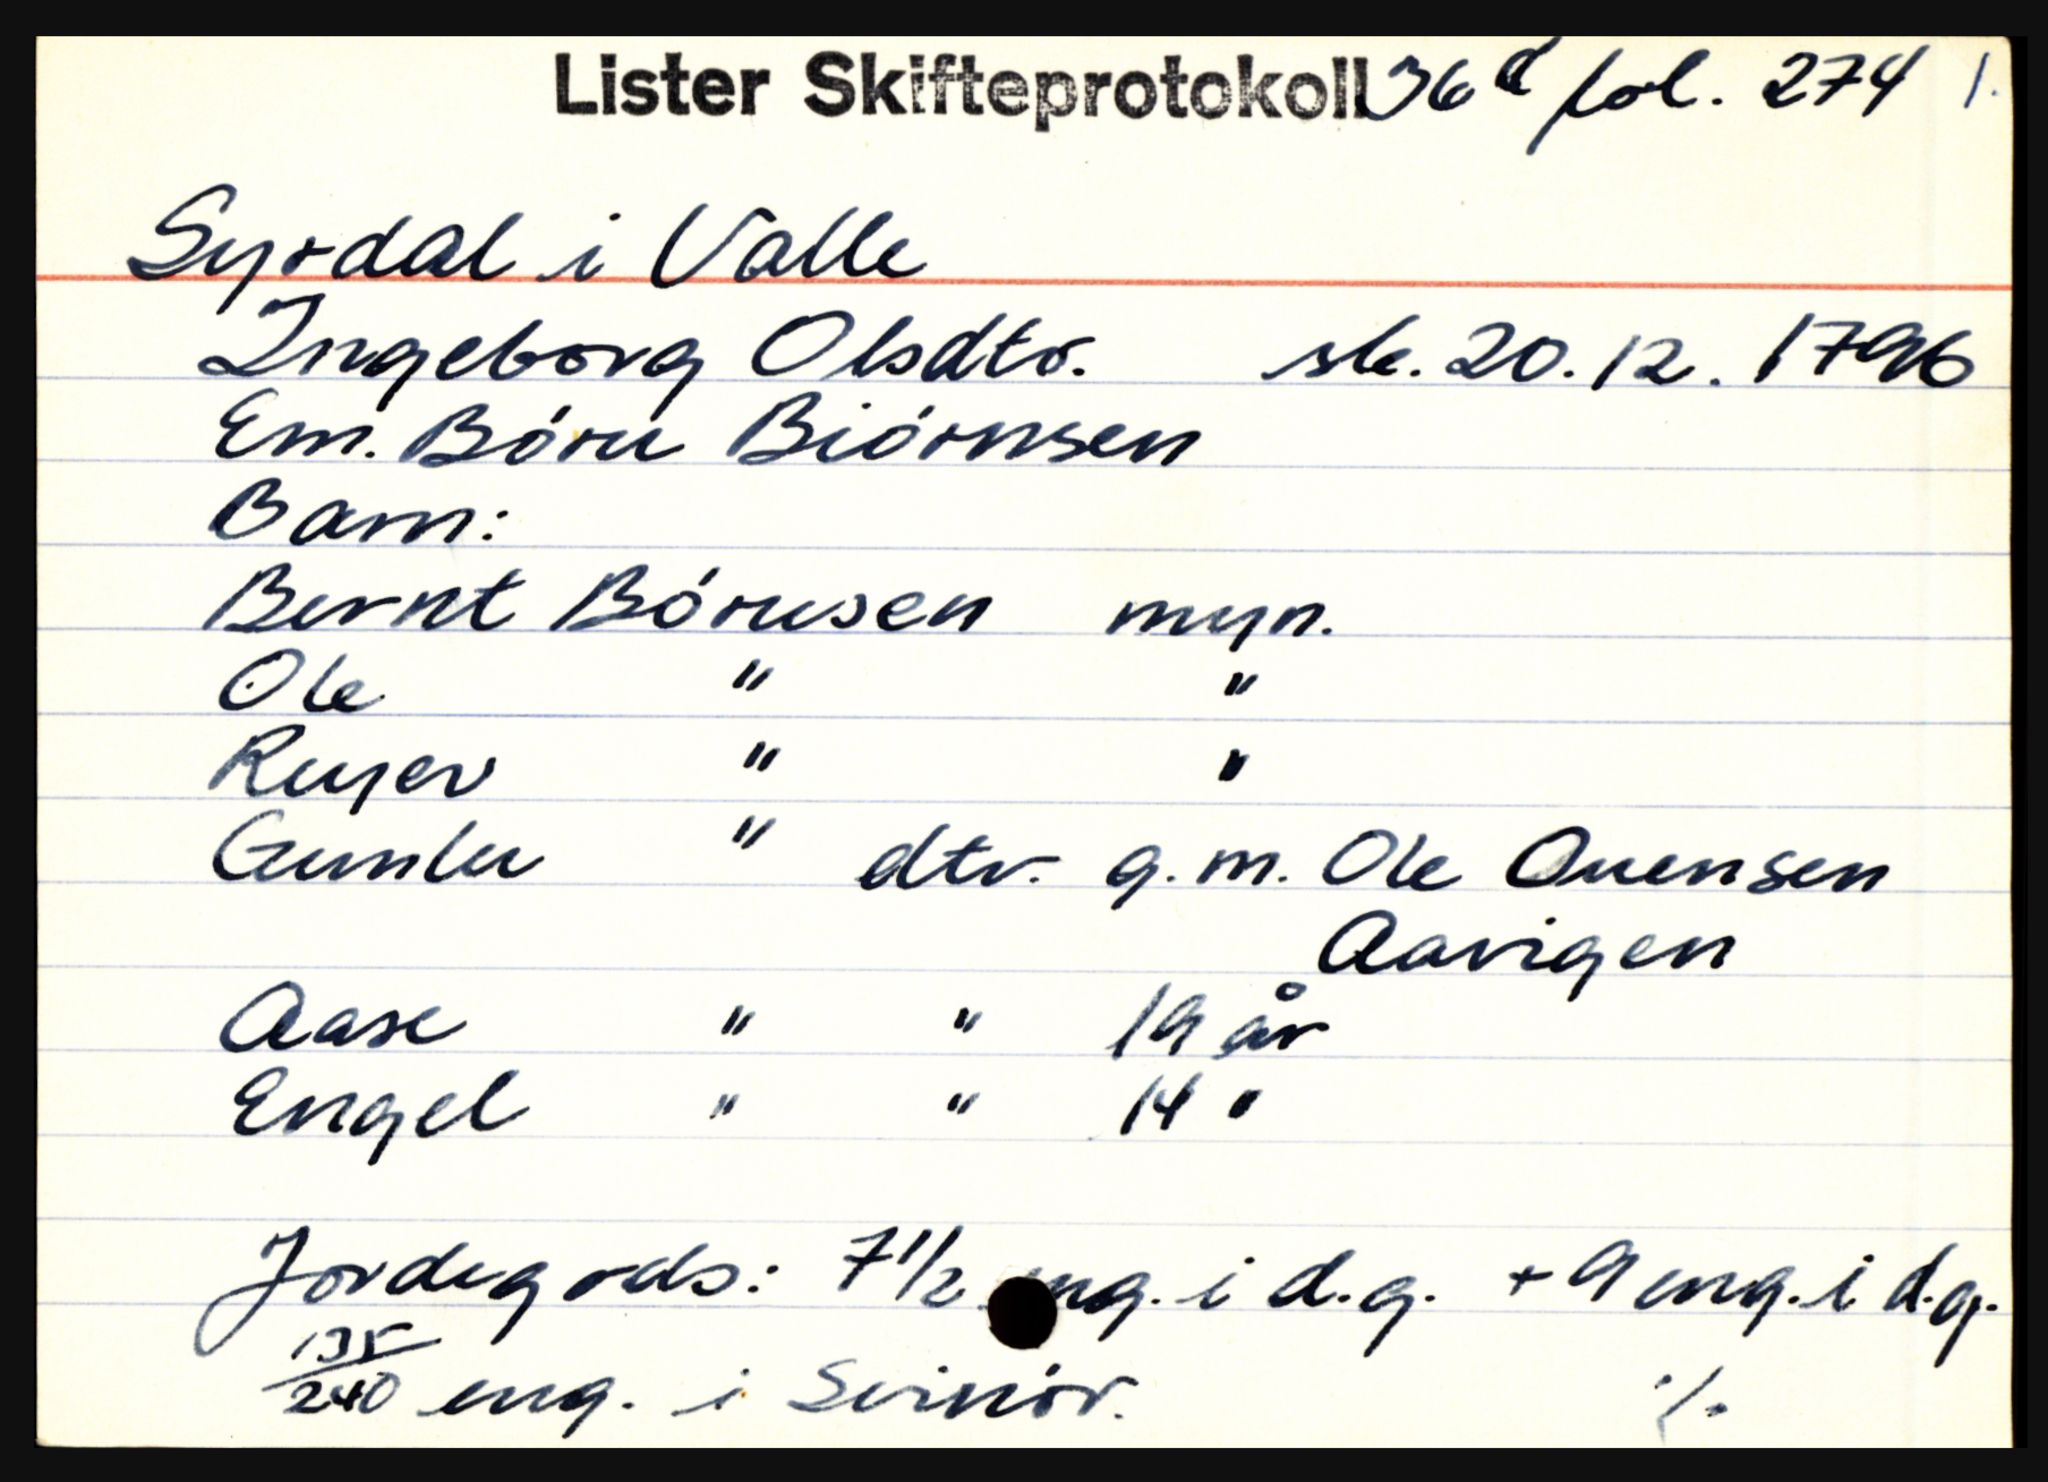 Lister Skifteprotokoll 36 d fol. 274 1.
Syrdal i Valle
Ingeborg Olsdtr. sk. 20.12.1796
Em. Bóru Biórnsen
Barn:
Bernt Bórusen myn.
Ole " "
Reyer " "
Gunlu " dtr. g.m. Ole Ouensen
Aavigen
Aase " " 19 år
Engel " " 14 "
Jordegods: 7 1/2 eng. i d.g. + 9 eng. i d.g.
135/240 eng. i Svinör.
./.